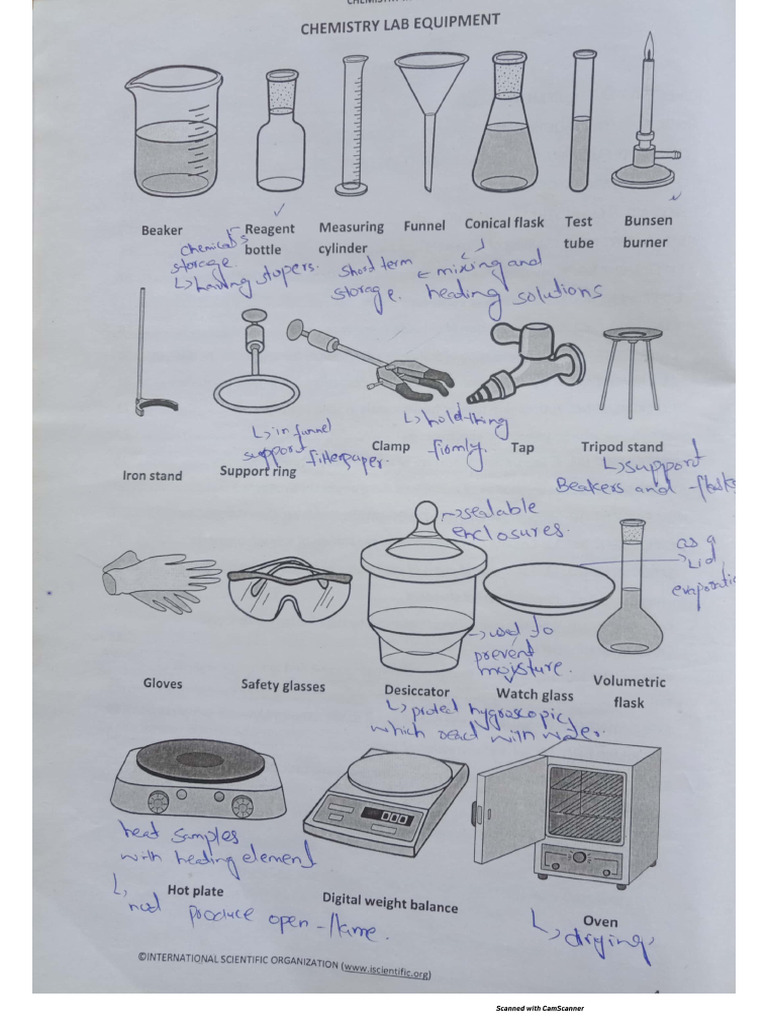 CHEMISTRY LAB EQUIPMENT
Beaker
Reagent
bottle
Measuring
cylinder
Funnel
Conical flask
Test
tube
Bunsen
burner
chemicals
storage.
↳ having stopers.
short term
storage.
← mixing and
heading solutions
Iron stand
Support ring
↳ in funnel
support filterpaper.
Clamp
↳ hold thing
firmly.
Tap
Tripod stand
↳ support
Beakers and flasks
→ sealable
enclosures.
as a
Lid,
→ used to
prevent
moisture.
Gloves
Safety glasses
Desiccator
Watch glass
Volumetric
flask
↳ protect hygroscopic
which react with water.
000
heat samples
with heating element
Hot plate
↳ not produce open-flame.
Digital weight balance
Oven
↳ drying,
©INTERNATIONAL SCIENTIFIC ORGANIZATION (www.iscientific.org)
Scanned with CamScanner